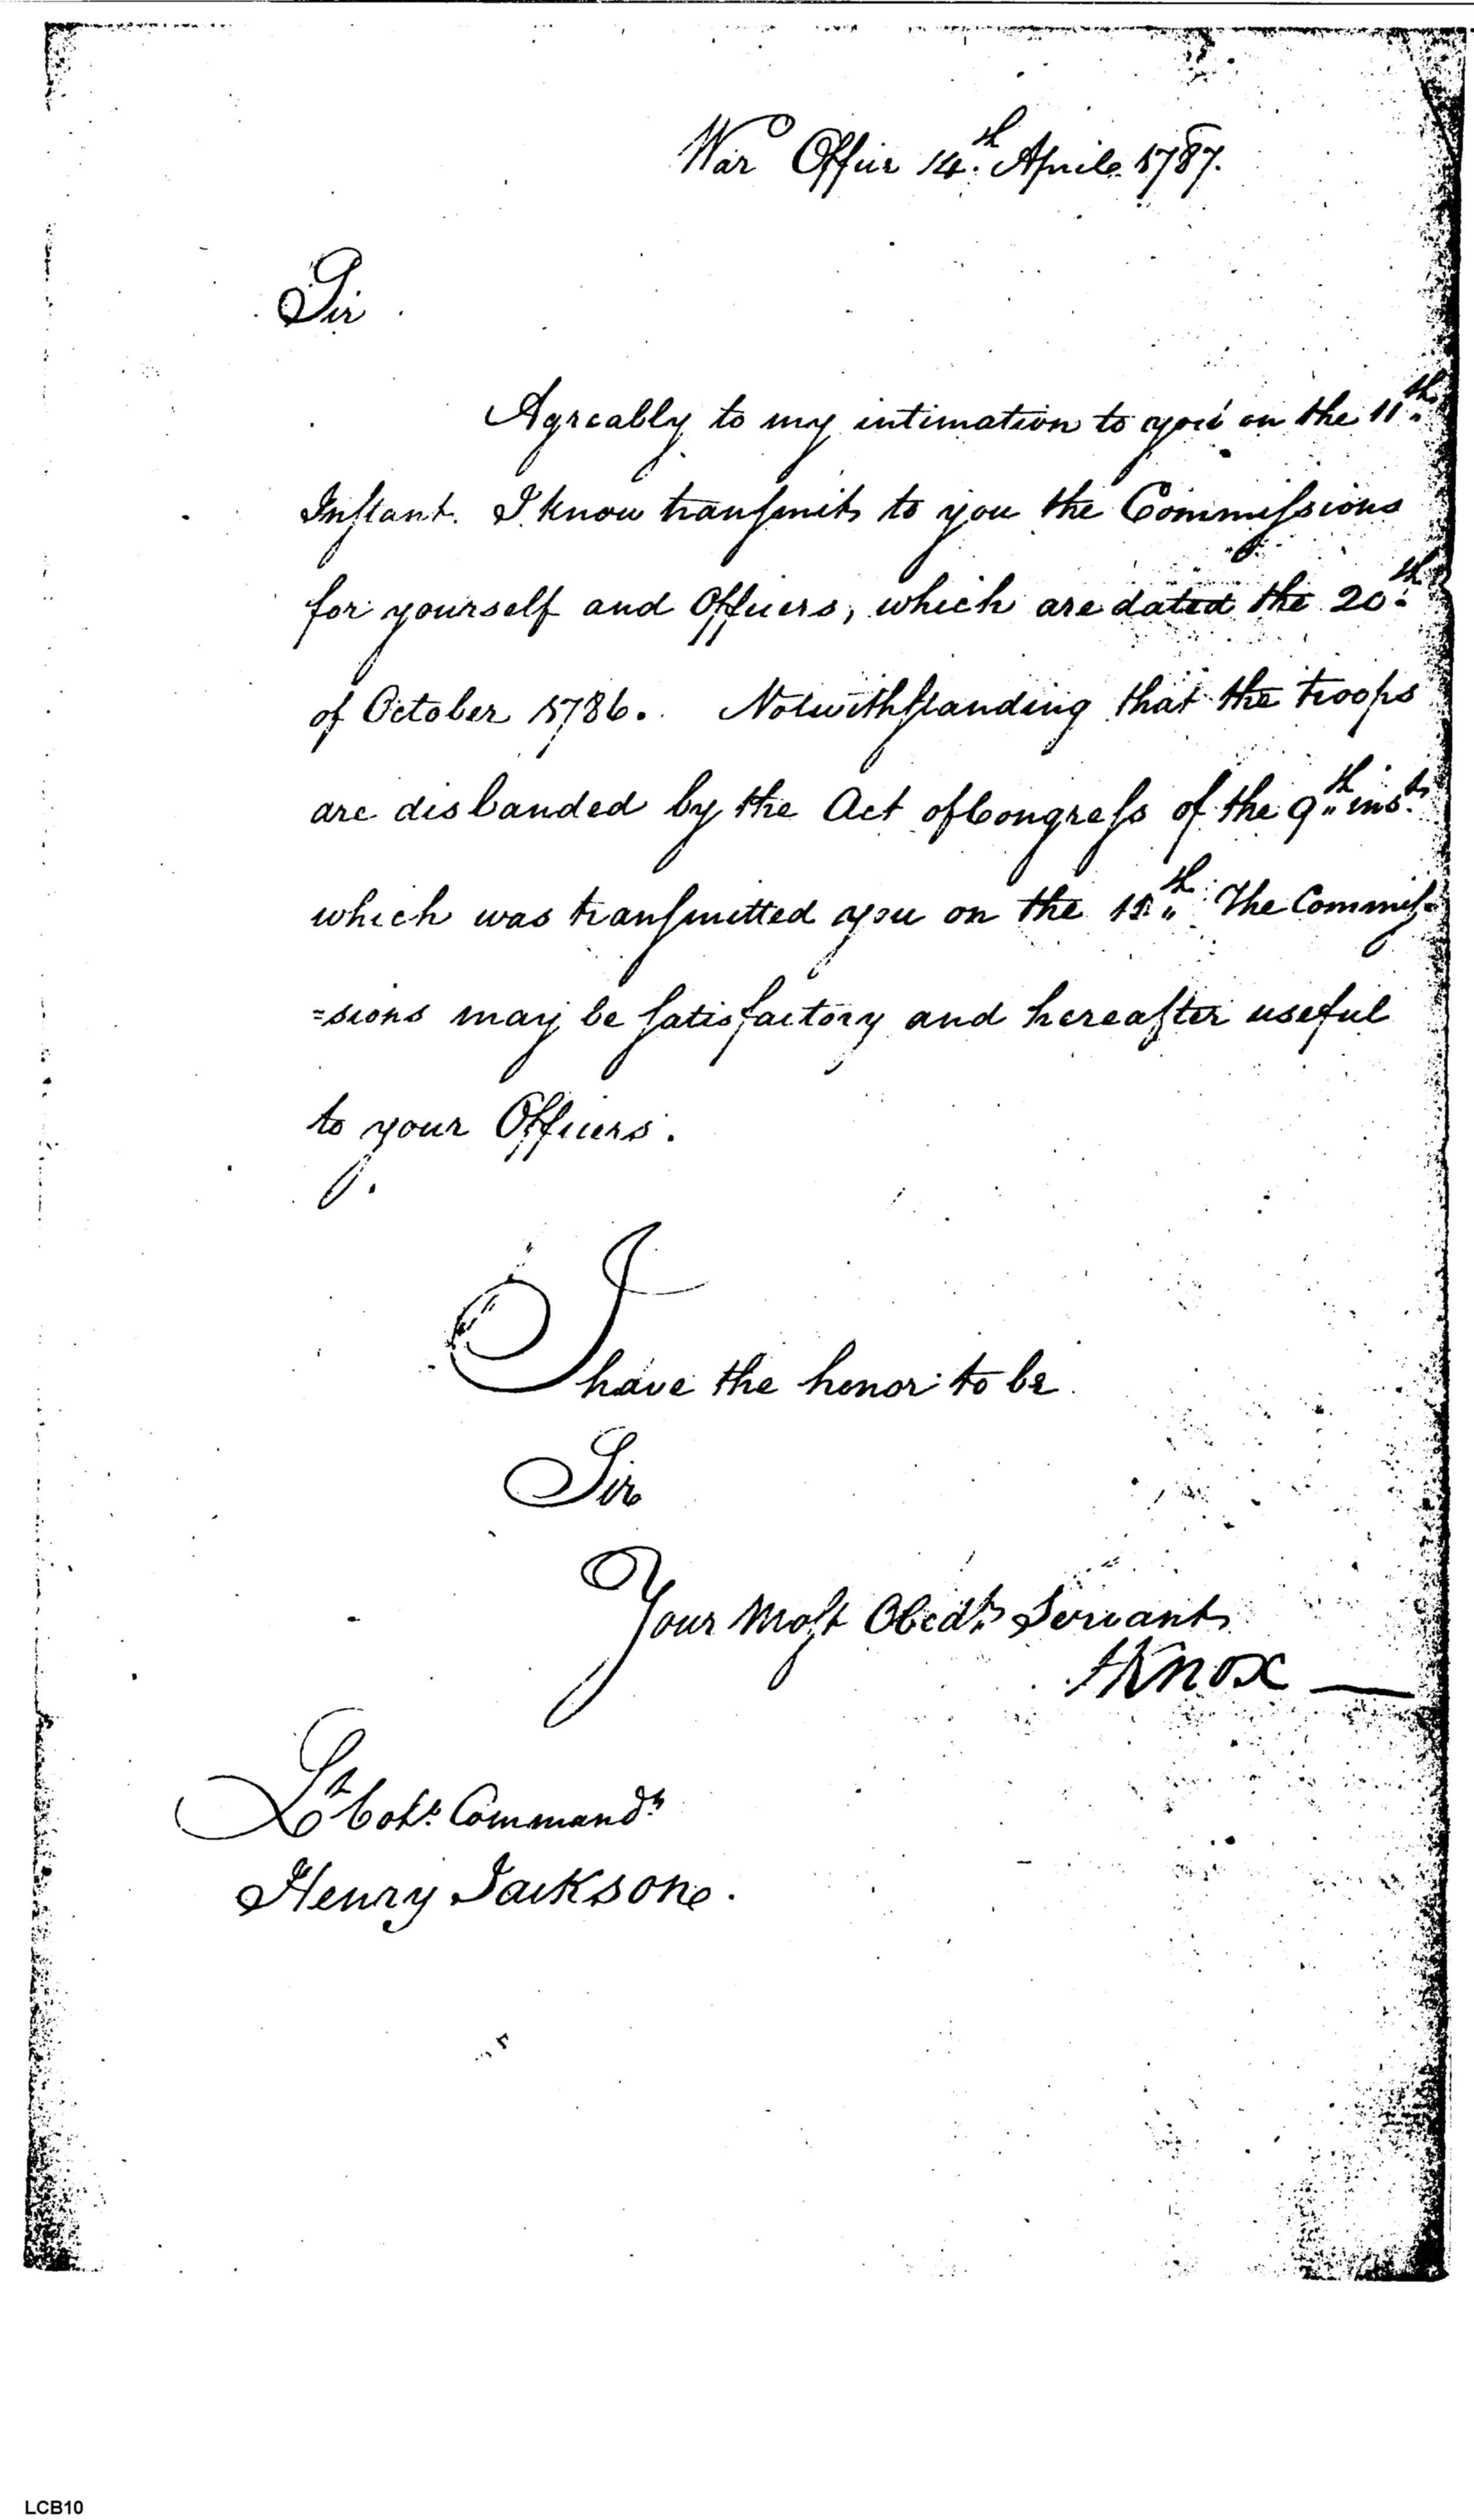 War Office 14th April 1787.
Sir
Agreably to my intimation to you on the 11th
Instant. I know transmit to you the Commissions
for yourself and Officers, which are dated the 20th
of October 1786. Notwithstanding that the troops
are disbanded by the Act of Congress of the 9th inst.
which was transmitted you on the 11th The Commis-
=sions may be satisfactory and hereafter useful
to your Officers.
I have the honor to be
Sir
Your Most Obedt Servant
HKnox
Lt Col. Commandt
Henry Jackson.
LCB10